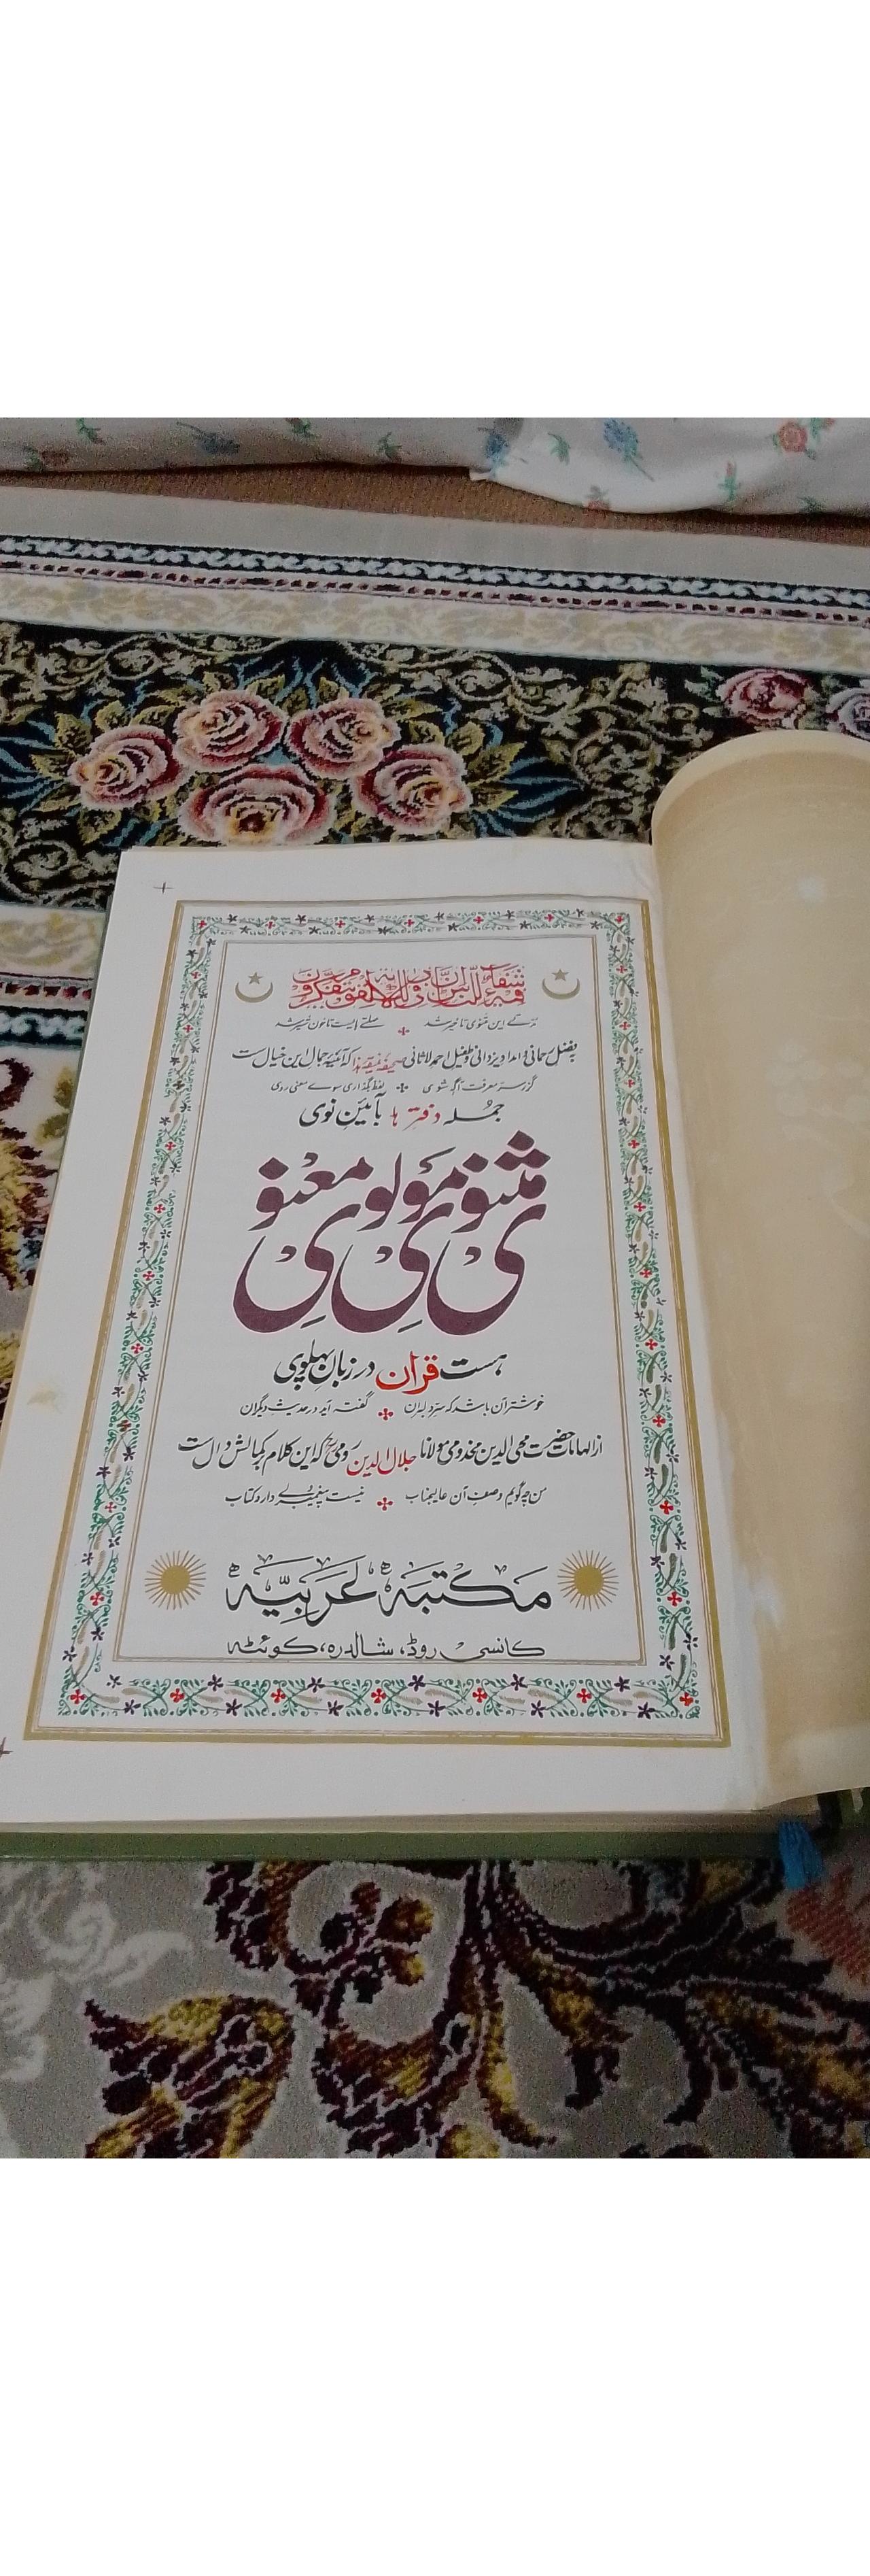 فيه شفآء للناس ان فی ذلك لاٰية لقوم يتفكرون
مدتے این مثنوی تاخیر شد ✣ مہلتے بایست تا خون شیر شد
بفضل سبحانی و امداد یزدانی و بطفیل احمد لاثانی صحیفہ کہ آئینہ جمال این خیال است
گر ز سر معرفت آگہ شوی ✣ لفظ بگذاری سوے معنی روی
جملہ دفتر ہا بآئین نوی
مثنوی مولوی معنوی
ہست قرآن در زبان پہلوی
خوشتر آن باشد کہ سر دلبران ✣ گفتہ آید در حدیث دیگران
از الہامات حضرت محی الدین مخدومی مولانا جلال الدین رومی کہ این کلام بر کمالش دال است
من چہ گویم وصف آن عالیجناب ✣ نیست پیغمبر ولے دارد کتاب
مکتبہ عربیّہ
کانسی روڈ، شالدرہ، کوئٹہ